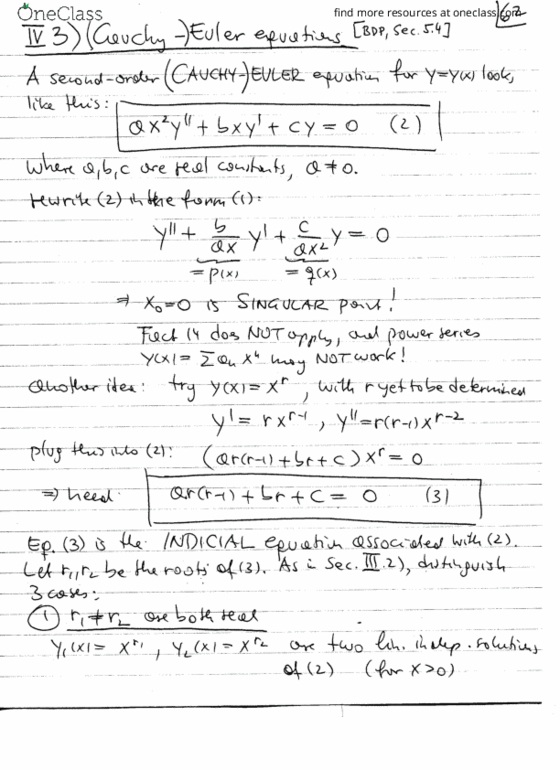 OneClass
find more resources at oneclass.com
IV 3) (Cauchy-)Euler equations [BDP, Sec. 5.4]
A second-order (CAUCHY-)EULER equation for y=y(x) looks
like this:
ax²y'' + bxy' + cy = 0 (2)
where a, b, c are real constants, a ≠ 0.
rewrite (2) in the form (1):
y'' + b/ax y' + c/ax² y = 0
= p(x) = q(x)
⇒ x₀=0 is SINGULAR point!
Fact 14 does NOT apply, and power series
y(x) = Σ aₙ xⁿ may NOT work!
another idea: try y(x) = x^r, with r yet to be determined
y' = r x^(r-1), y'' = r(r-1) x^(r-2)
plug this into (2): (ar(r-1) + br + c) x^r = 0
⇒ need ar(r-1) + br + c = 0 (3)
Eq. (3) is the INDICIAL equation associated with (2).
Let r₁, r₂ be the roots of (3). As in Sec. III.2), distinguish
3 cases:
① r₁ ≠ r₂ are both real
y₁(x) = x^r₁, y₂(x) = x^r₂ are two lin. indep. solutions
of (2) (for x>0)